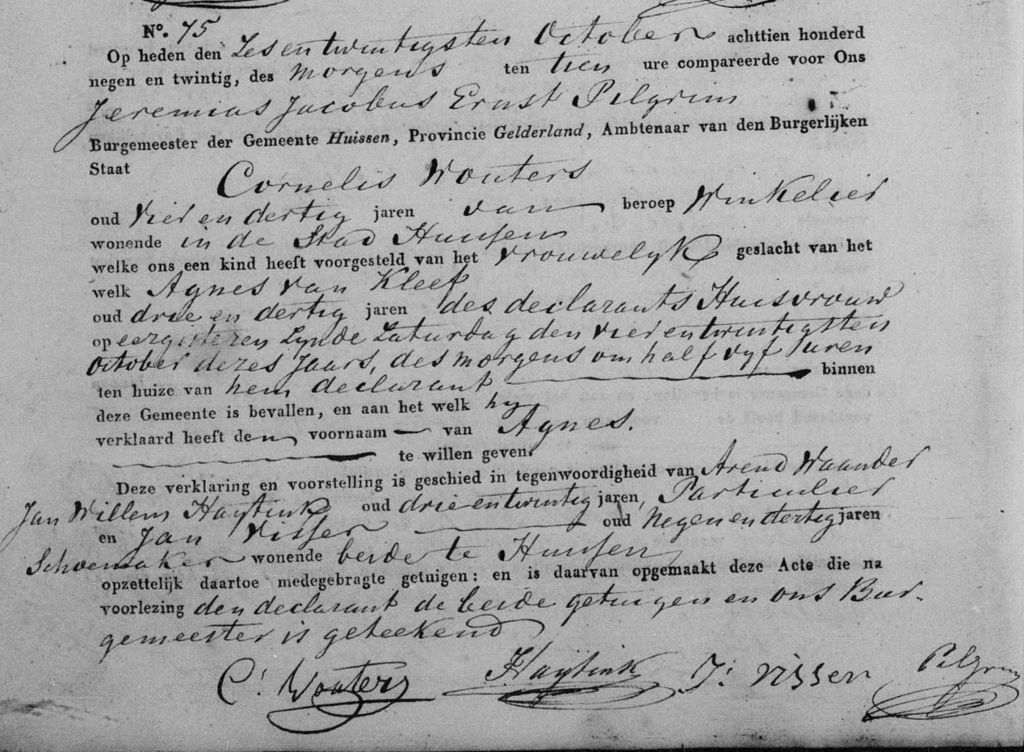 N°. 75
Op heden den Zesentwintigsten October achttien honderd
negen en twintig, des morgens ten tien ure compareerde voor Ons
Jeremias Jacobus Ernst Pelgrim
Burgemeester der Gemeente Huissen, Provincie Gelderland, Ambtenaar van den Burgerlijken
Staat
Cornelis Wouters
oud vier en dertig jaren van beroep Winkelier
wonende in de Stad Huissen
welke ons een kind heeft voorgesteld van het vrouwelyk geslacht van het
welk Agnes van Kleef
oud drie en dertig jaren des declarants Huisvrouw
op eergisteren Zynde Zaturdag den vier entwintigsten
October dezes Jaars, des morgens om half vyf uren
ten huize van hem declarant binnen
deze Gemeente is bevallen, en aan het welk hy
verklaard heeft den voornaam van Agnes.
te willen geven.
Deze verklaring en voorstelling is geschied in tegenwoordigheid van Arend Waander
Jan Willem Haytink oud drieentwintig jaren, Particulier
en Jan Visser oud negen en dertig jaren
Schoenmaker wonende beide te Huissen
opzettelijk daartoe medegebragte getuigen: en is daarvan opgemaakt deze Acte die na
voorlezing den declarant de beide getuigen en ons Bur-
gemeester is geteekend
C: Wouters Haytink J: Visser Pelgrim